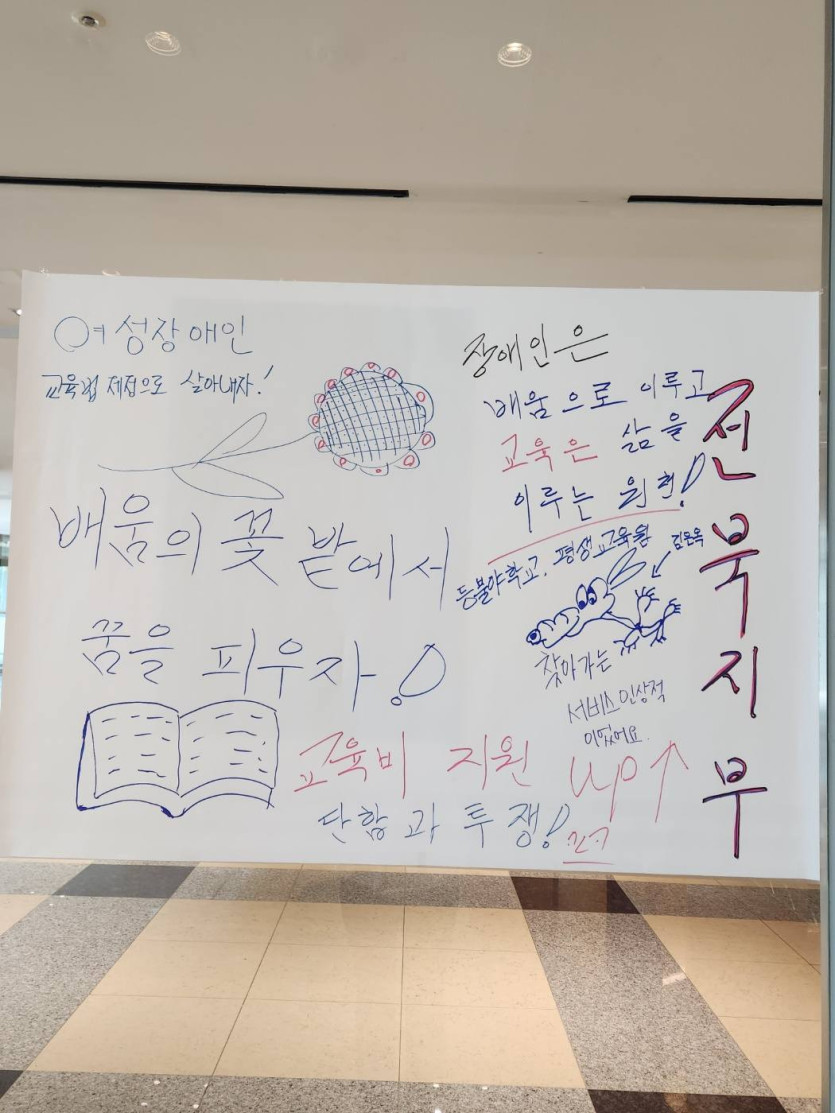 여성장애인
교육법 제정으로 살아내자!
배움의 꽃 밭에서
꿈을 피우자!
장애인은
배움으로 이루고
교육은 삶을
이루는 원천!
등불야학교, 평생교육원
찾아가는
서비스 인상적
이었어요.
교육비 지원 up↑
단합과 투쟁!
전북지부